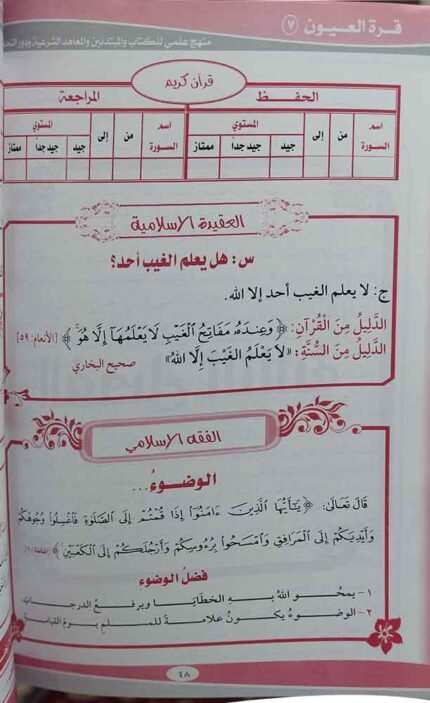 قرة العيون ٧
منهج علمي للكتاب والمبتدئين والمعاهد الشرعية ودور
قرآن كريم
الحفظ المراجعة
اسم السورة من إلى المستوي اسم السورة من إلى المستوي
جيد جيد جداً ممتاز جيد جيد جداً ممتاز
العقيدة الإسلامية
س: هل يعلم الغيب أحد؟
ج: لا يعلم الغيب أحد إلا الله.
الدَّلِيلُ مِنَ الْقُرْآنِ: ﴿ وَعِندَهُ مَفَاتِحُ الْغَيْبِ لَا يَعْلَمُهَا إِلَّا هُوَ ﴾ [الأنعام: ٥٩]
الدَّلِيلُ مِنَ السُّنَّةِ: «لاَ يَعْلَمُ الْغَيْبَ إِلَّا اللهُ» صحيح البخاري
الفقه الإسلامي
الوضوءُ...
قَالَ تَعَالَىٰ: ﴿ يَٰٓأَيُّهَا الَّذِينَ ءَامَنُوٓا إِذَا قُمْتُمْ إِلَى الصَّلَوٰةِ فَاغْسِلُوا وُجُوهَكُمْ
وَأَيْدِيَكُمْ إِلَى الْمَرَافِقِ وَامْسَحُوا بِرُءُوسِكُمْ وَأَرْجُلَكُمْ إِلَى الْكَعْبَيْنِ ﴾
فضلُ الوضوء
١- يمحُو اللهُ بهِ الخطَايَا ويرفعُ الدرجاتِ
٢- الوضوءُ يكونُ علامةً للمسلمِ يومَ القيامةِ
٤٨